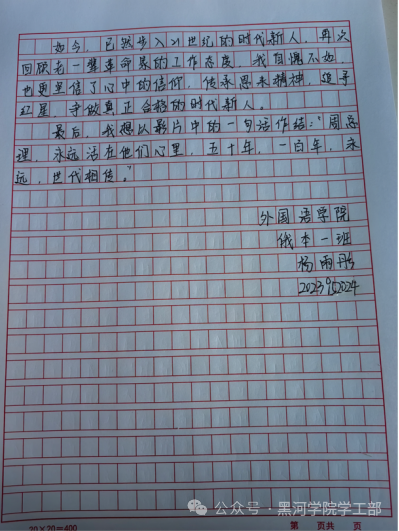 如今，已然步入21世纪的时代新人，再次
回顾老一辈革命家的工作态度，我自愧不如，
也更坚信了心中的信仰，传承恩来精神，追寻
红星，争做真正合格的时代新人。
最后，我想以影片中的一句话作结："周总
理，永远活在他们心里，五十年，一百年，永
远，世代相传。"
外国语学院
俄本一班
杨雨彤
2024
20×20=400
第 页共 页
公众号·黑河学院学工部